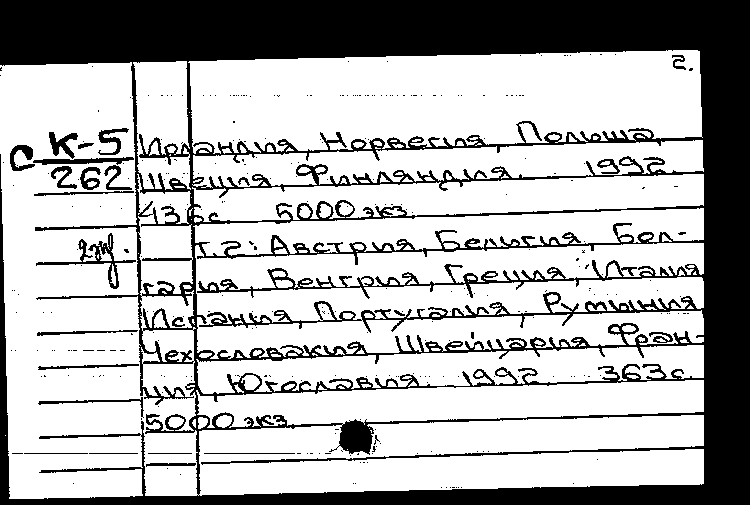 2.
С К-5 Ирландия, Норвегия, Польша,
262 Швеция, Финляндия. 1992.
436 с. 5000 экз.
2 экз. Т.2: Австрия, Бельгия, Бол-
гария, Венгрия, Греция, Италия
Испания, Португалия, Румыния,
Чехословакия, Швейцария, Фран-
ция, Югославия. 1992 363 с.
5000 экз.